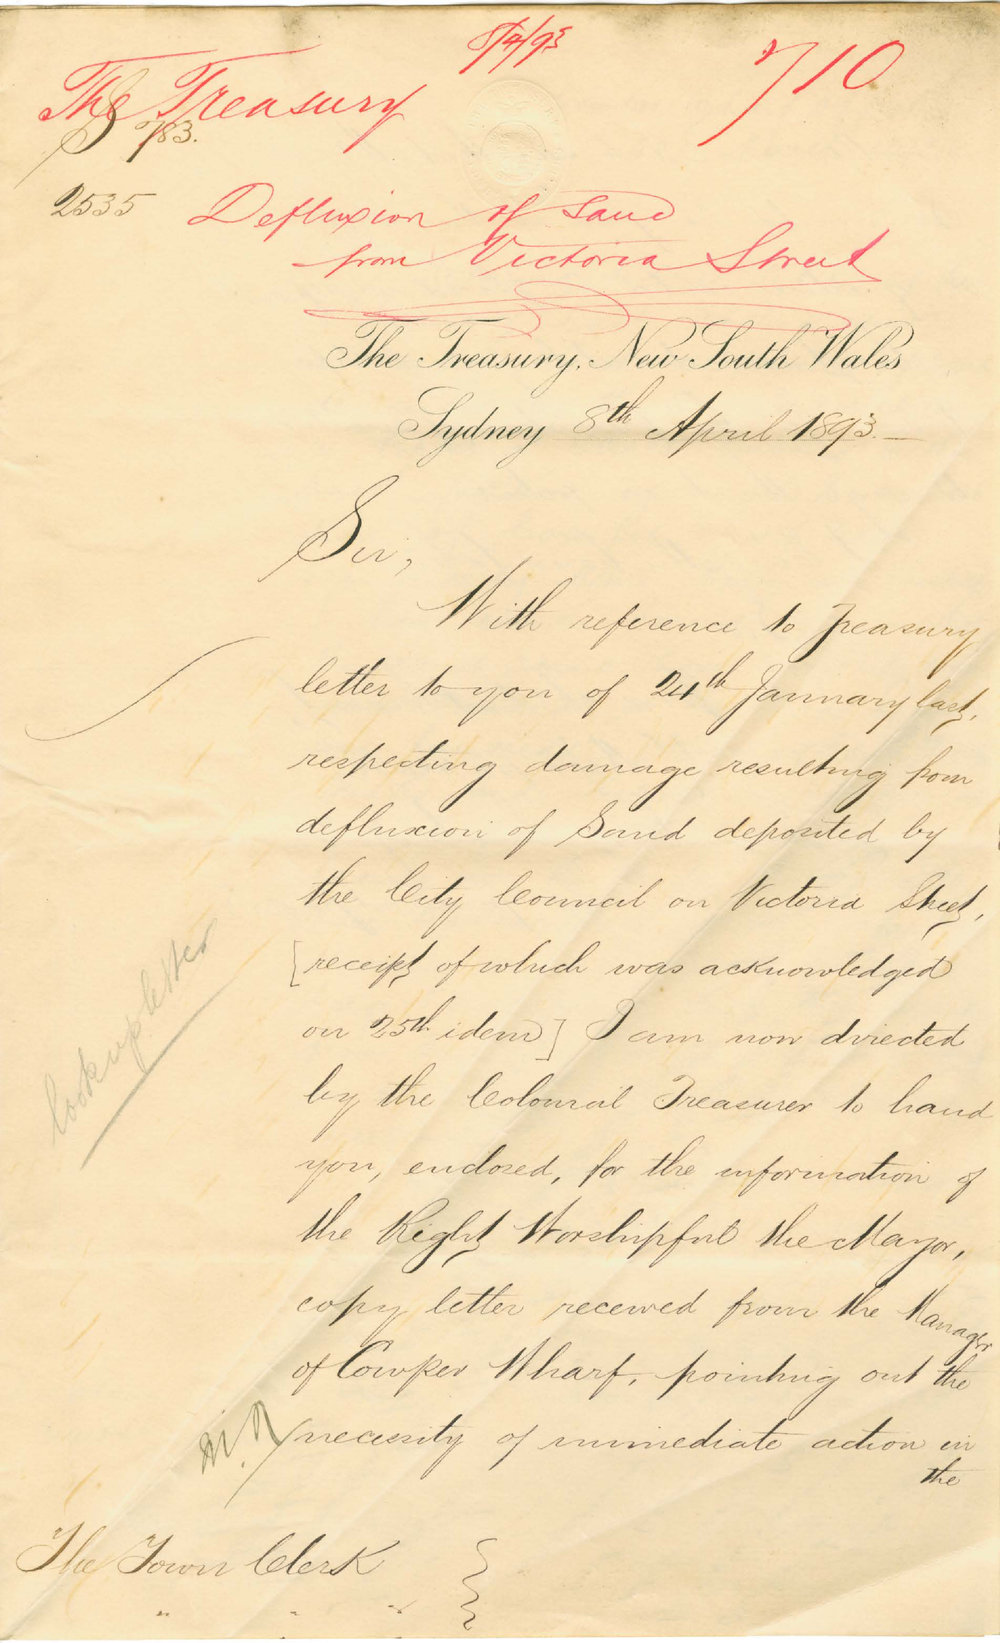 8/4/93
710
The Treasury
783.
2535
Defluxion of Sand
from Victoria Street
The Treasury, New South Wales
Sydney 8th April 1893.
Sir,
With reference to Treasury
letter to you of 24th January last,
respecting damage resulting from
defluxion of Sand deposited by
the City Council on Victoria Street,
[receipt of which was acknowledged
on 25th idem] I am now directed
by the Colonial Treasurer to hand
you, enclosed, for the information of
the Right Worshipful the Mayor,
copy letter received from the Manager
of Cowper Wharf, pointing out the
necessity of immediate action in
the
look up letter
The Town Clerk
" " "